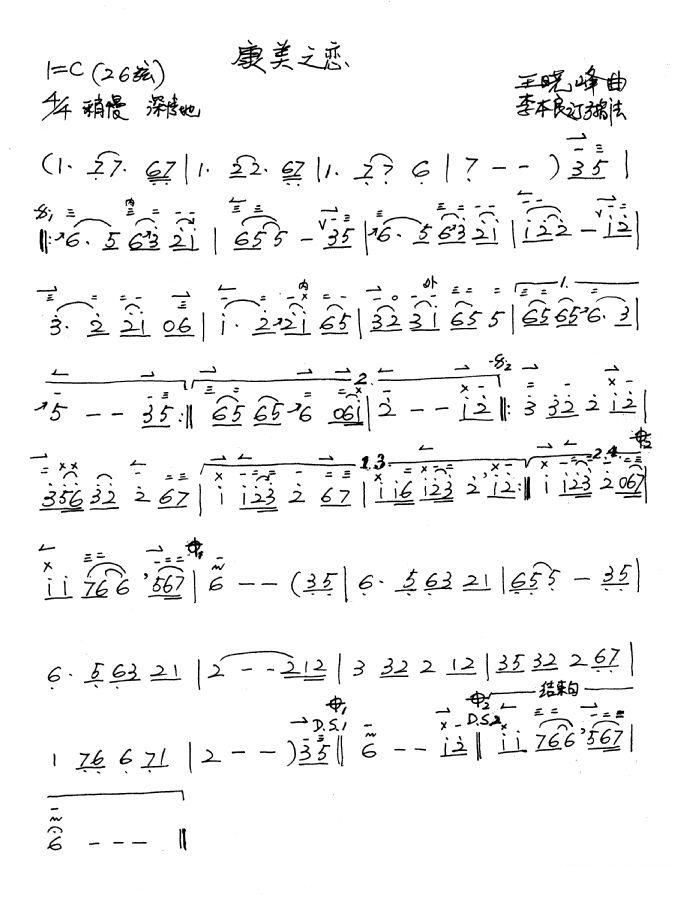 康美之恋
1=C (26弦)
4/4 稍慢 深情地
王晓峰曲
李本良订指法
(1. 27. 67 | 1. 22. 67 | 1. 77 6 | 7 - - ) 35 |
‖: 6. 5 63 21 | 655 - 35 | 6. 5 63 21 | 122 - 12 |
3. 2 21 06 | 1. 2 21 65 | 32 31 65 5 | 1. 65 65 6. 3 |
5 - - 35 :‖ 65 65 6 061 | 2. 2 - - 12 ‖: 3 32 2 12 |
356 32 2 67 | 1 123 2 67 | 1.3. 116 123 2 12 :‖ 2.4. 1 123 2 067 |
11 766 567 | 6 - - (35 | 6. 5 63 21 | 655 - 35 |
6. 5 63 21 | 2 - - 212 | 3 32 2 12 | 35 32 2 67 |
D.S.1 D.S.2 结束句
1 76 6 71 | 2 - - ) 35 ‖ 6 - - 12 ‖ 11 766 567 |
6 - - - ‖